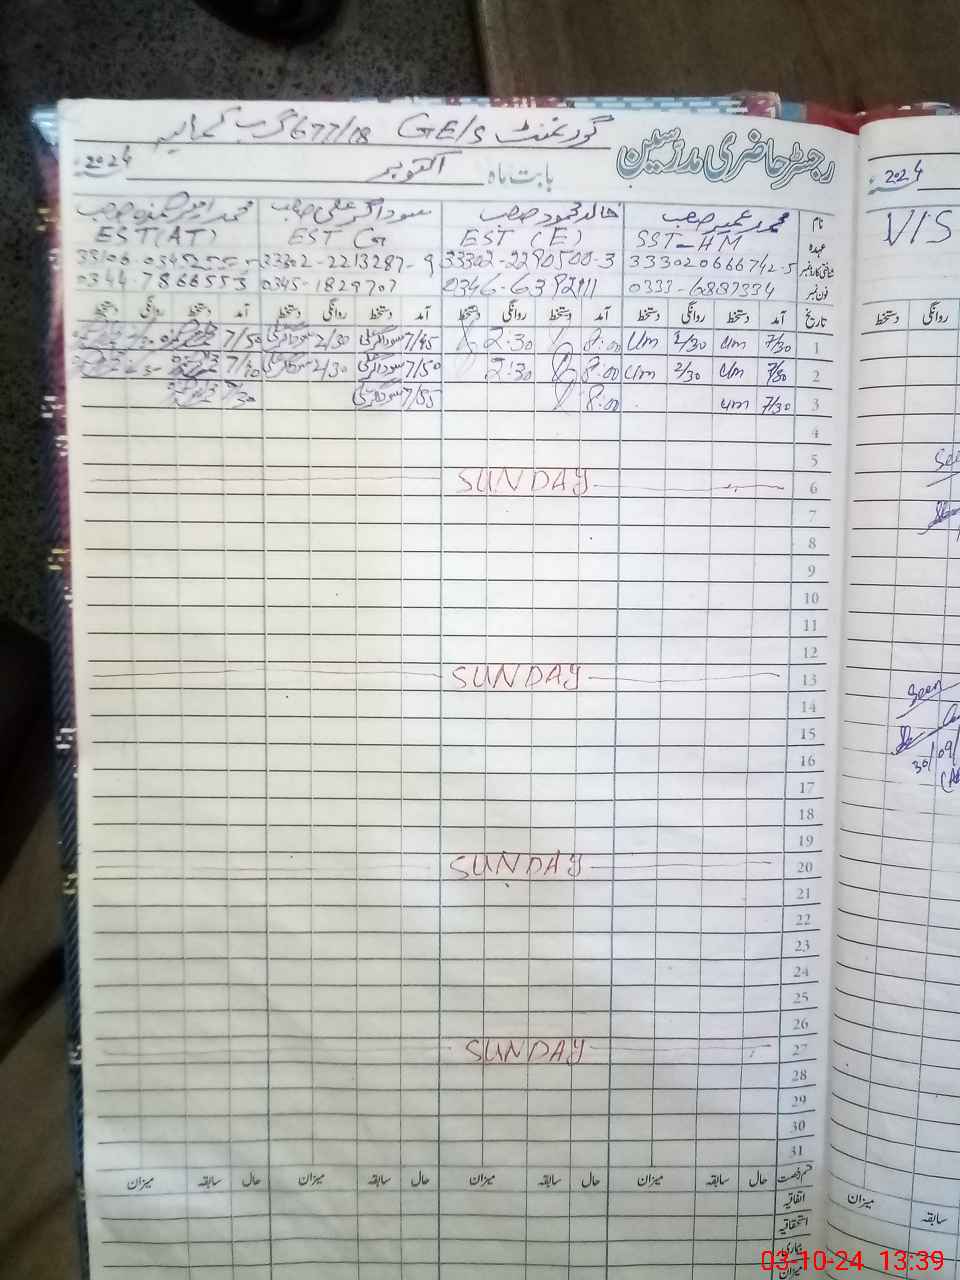 گورنمنٹ GE/S 677/18 گ ب کمالیہ
رجسٹر حاضری مدرسین
بابت ماہ اکتوبر 2024
2024
نام محمد عمیر صاحب خالد محمود صاحب سوداگر علی صاحب محمد
عہدہ SST-HM EST (E) EST CG EST (AT)
شناختی کارڈ نمبر 333020666742-5 33302-2290500-3 33302-2213287-9
فون نمبر 0333-6887334 0346-6392111 0345-1829707 0344-7866553
تاریخ آمد دستخط روانگی دستخط آمد دستخط روانگی دستخط آمد دستخط روانگی دستخط آمد دستخط روانگی دستخط
1 7/30 um 2/30 um 8:00 2:30 7/45 سوداگر علی 2/30 سوداگر علی 7/50
2 7/30 um 2/30 um 8:00 2:30 7/50 سوداگر علی 2/30 سوداگر علی
3 7/30 um 8:00 7/55 سوداگر علی 7/30
4
5
6 SUNDAY
7
8
9
10
11
12
13 SUNDAY
14
15
16
17
18
19
20 SUNDAY
21
22
23
24
25
26
27 SUNDAY
28
29
30
31
قسم رخصت حال سابقہ میزان حال سابقہ میزان حال سابقہ میزان حال سابقہ میزان
اتفاقیہ
استحقاقیہ
بیماری
میزان
VIS
روانگی دستخط
See
Seen
30/09/
میزان
سابقہ
03-10-24 13:39